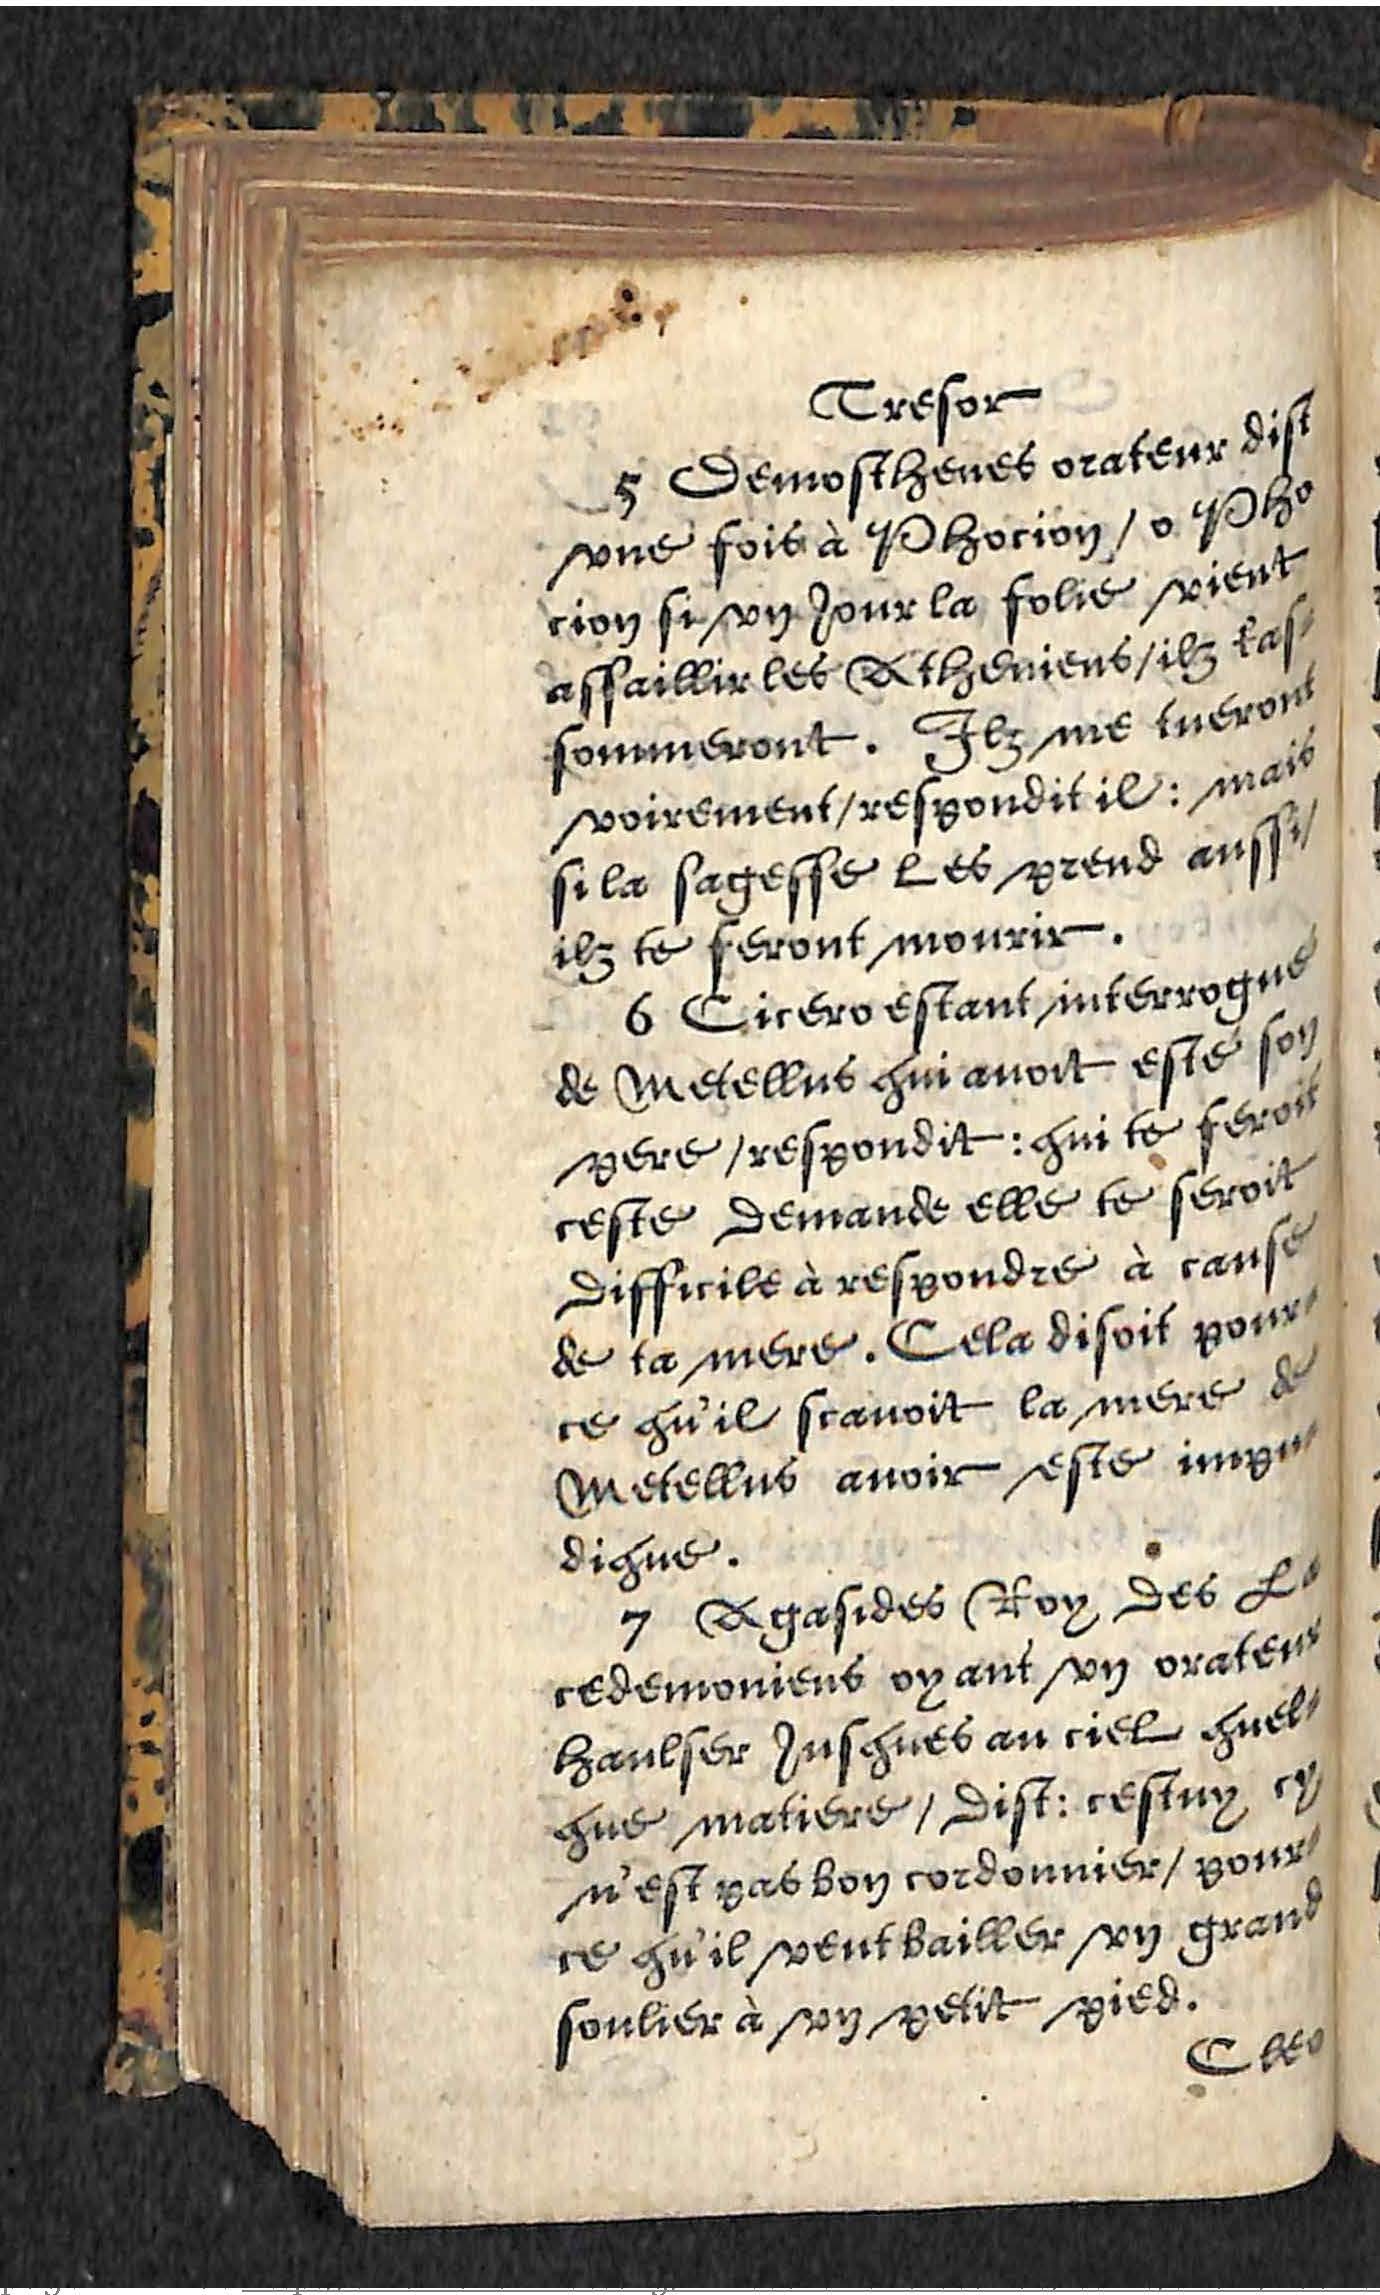 Tresor
5 Demosthenes orateur dist
vne fois à Phocion / o Pho
cion si vn Jour la folie vient
assaillir les Atheniens / ilz t'as-
sommeront. Ilz me tueront
voirement / respondit il : mais
si la sagesse Les prend aussi /
ilz te feront mourir.
6 Cicero estant interrogué
de Metellus qui auoit esté son
pere / respondit : qui te feroit
ceste Demande elle te seroit
Difficile à respondre à cause
de ta mere. Cela disoit pour-
ce qu'il scauoit la mere de
Metellus auoir este impu-
dique.
7 Agasides Roy Des La
cedemoniens oyant vn orateur
haulser Jusques au ciel quel-
que matiere / Dist : cestuy cy
n'est pas bon cordonnier / pour-
ce qu'il veut bailler vn grand
soulier à vn petit pied.
Cleo